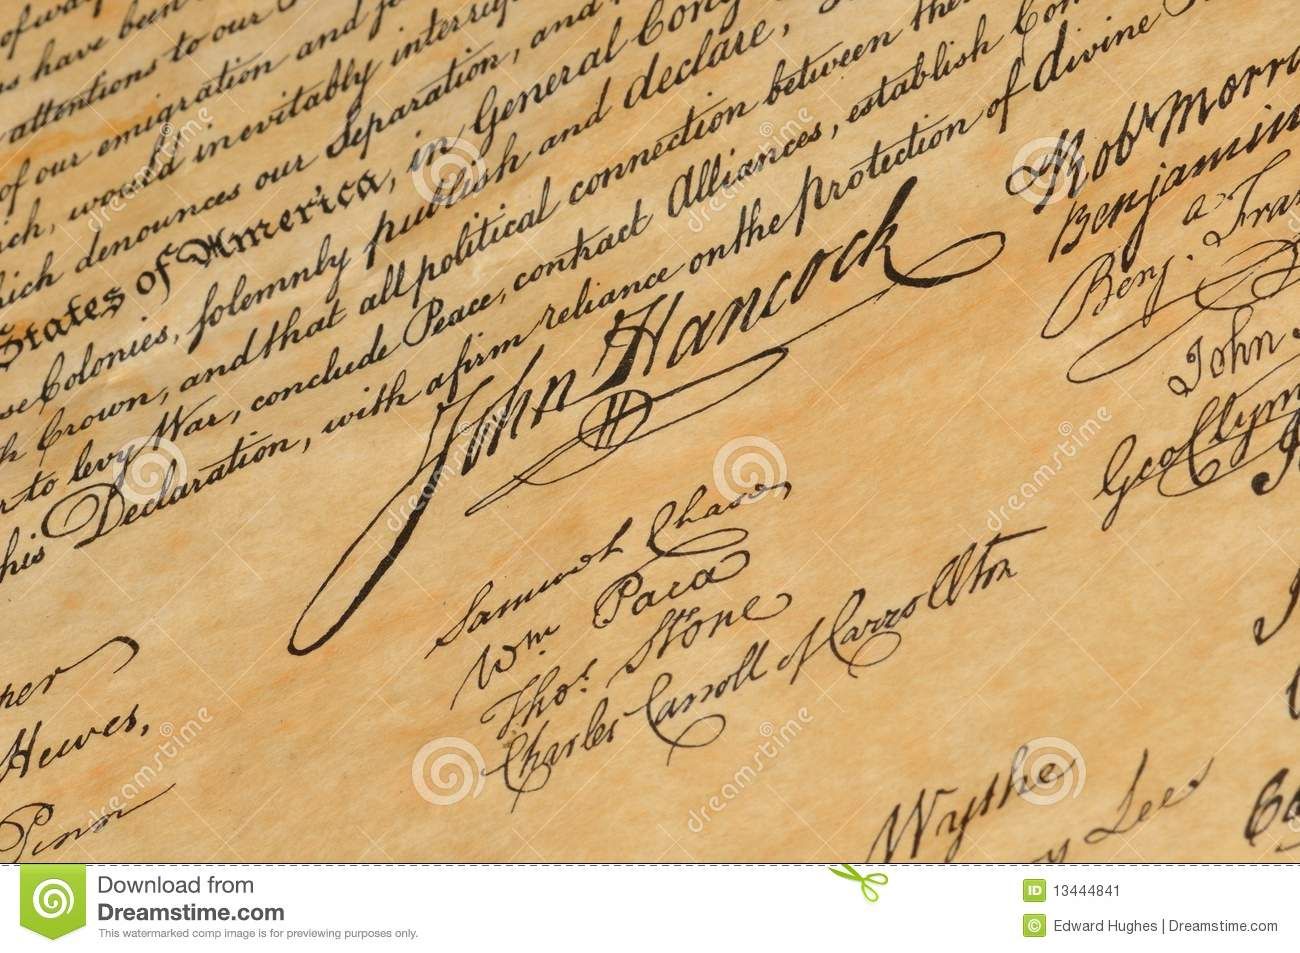 of
have been
attentions to our
of our emigration and
ich, would inevitably
hich denounces our Separation, and
States of America, in General Cong
se Colonies, solemnly publish and declare,
h Crown, and that all political connection between the
r to levy War, conclude Peace, contract Alliances, establish Com
his Declaration, with a firm reliance on the protection of divine
John Hancock
Samuel Chase
Wm Paca
Thos. Stone
Charles Carroll of Carrollton
Robt Morri
Benjamin
Benj. a Fran
John
Geo Clym
Hewes,
Penn
Wythe
Lee
dreamstime
Download from
Dreamstime.com
This watermarked comp image is for previewing purposes only.
ID 13444841
© Edward Hughes | Dreamstime.com